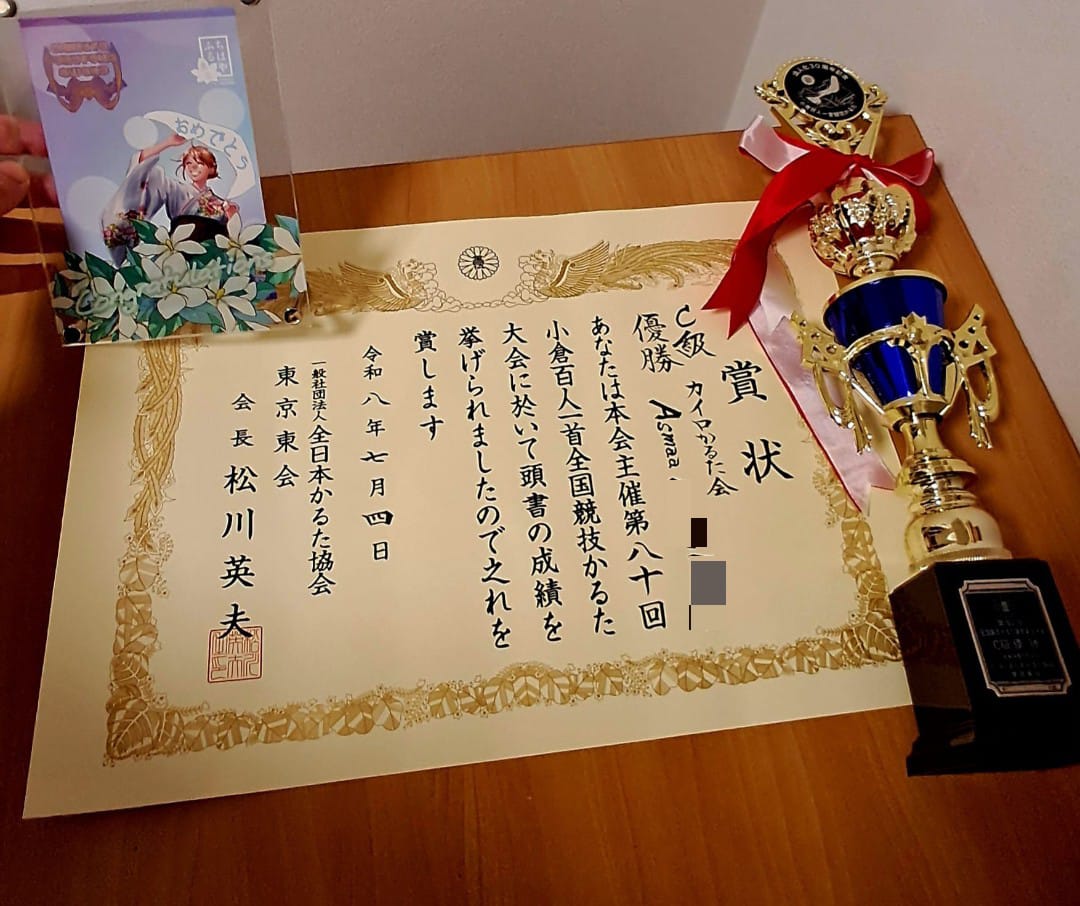 ちはや
ふる
おめでとう
Congratulations
賞状
C級
優勝
カイロかるた会
Asmaa
あなたは本会主催第八十回
小倉百人一首全国競技かるた
大会に於いて頭書の成績を
挙げられましたので之れを
賞します
令和八年七月四日
一般社団法人全日本かるた協会
東京東会
会長 松川英夫
C級優勝